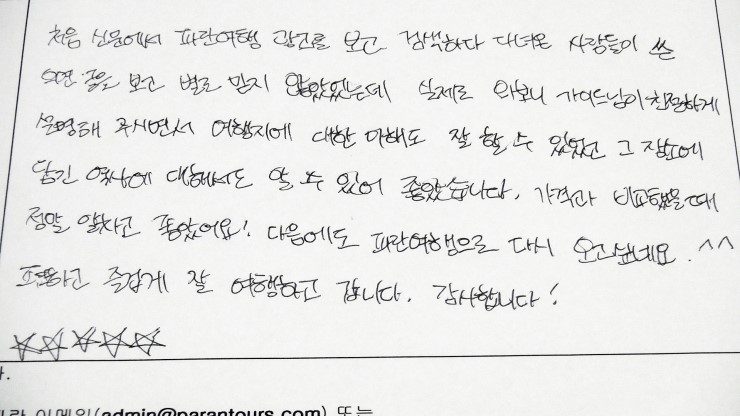 처음 신문에서 파란여행 광고를 보고 검색하다 다녀온 사람들이 쓴
의견 글을 보고 별로 믿지 않았었는데 실제로 와보니 가이드님이 친절하게
설명해 주시면서 여행지에 대한 이해도 잘 할 수 있었고 그 장소에
담긴 역사에 대해서도 알 수 있어 좋았습니다. 가격과 비교했을 때
정말 알차고 좋았어요! 다음에도 파란여행으로 다시 오고싶네요. ^^
포근하고 즐겁게 잘 여행하고 갑니다. 감사합니다!
☆☆☆☆☆
이메일(admin@parantours.com) 또는